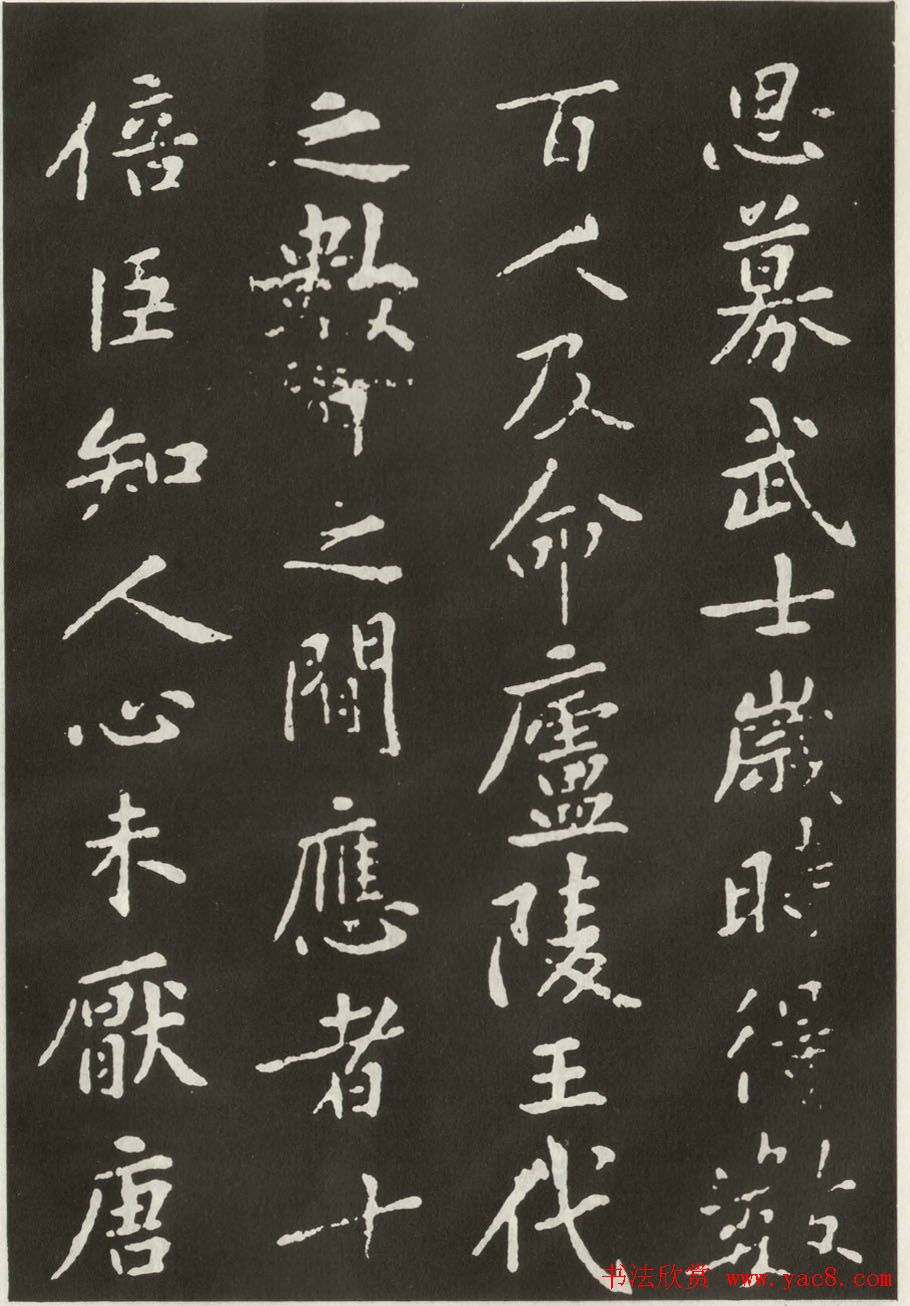 思募武士歲時得數
百人及命廬陵王代
之數中之間應者十
倍臣知人心未厭唐
书法欣赏 www.yac8.com